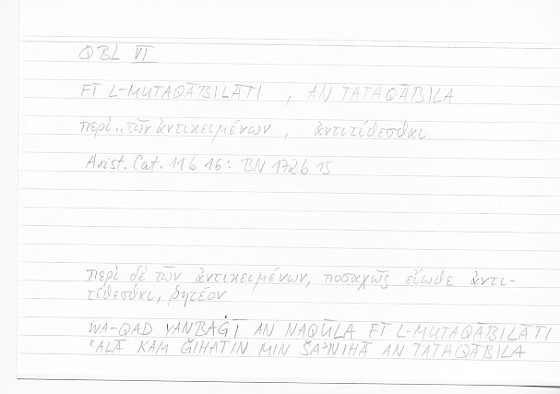 QBL VI
FĪ L-MUTAQĀBILĀTI , AN TATAQĀBILA
περὶ.. τῶν ἀντικειμένων , ἀντιτίθεσθαι
Arist. Cat. 11b16: BN 172b15
περὶ δὲ τῶν ἀντικειμένων, ποσαχῶς εἴωθε ἀντι-
τίθεσθαι, ῥητέον
WA-QAD YANBAĠĪ AN NAQŪLA FĪ L-MUTAQĀBILĀTI
ʿALĀ KAM ĞIHATIN MIN ŠAʾNIHĀ AN TATAQĀBILA